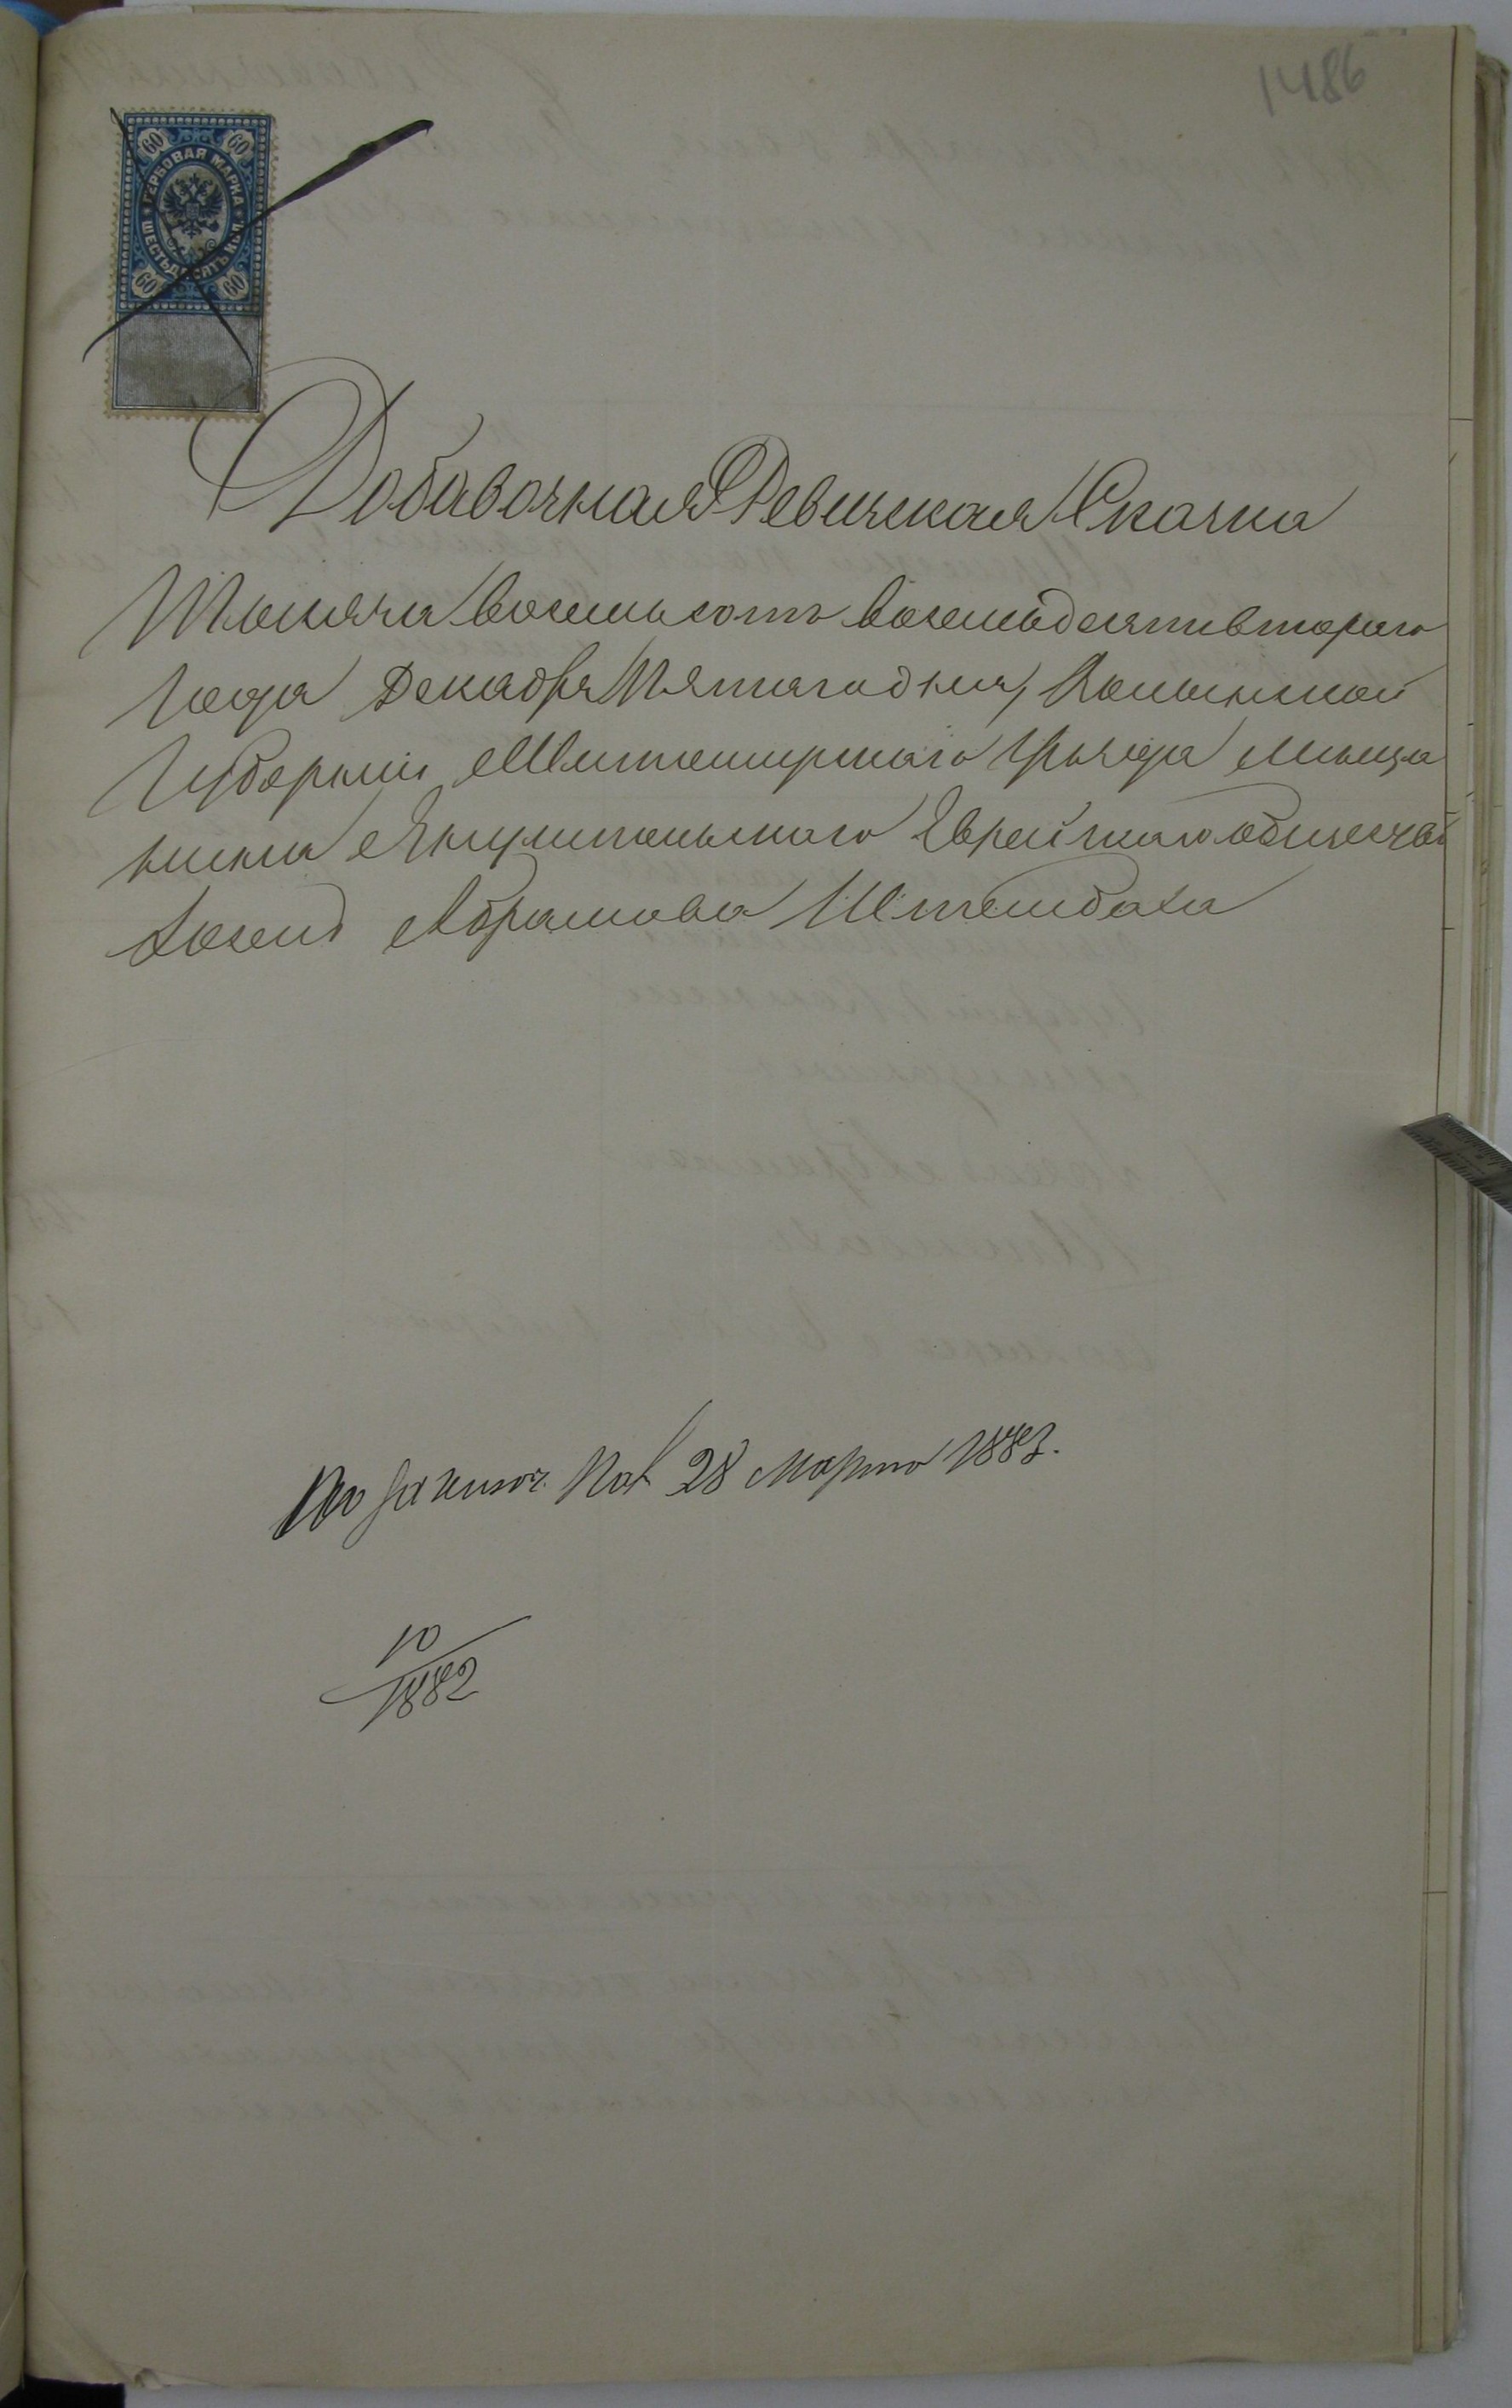 1486
60 60
ГЕРБОВАЯ МАРКА
ШЕСТЬДЕСЯТЪ КОП.
60 60
Добавочная Ревизская Сказка
Тысяча восемьсотъ восемьдесятивтораго
Года Декабря Пятагодня, Волынской
Губерніи Житомирскаго Уѣзда мѣща
нина Янушпольскаго Еврейскаго общества
Абрамова Штейбаха
По 28 Марта 1883.
10
1882